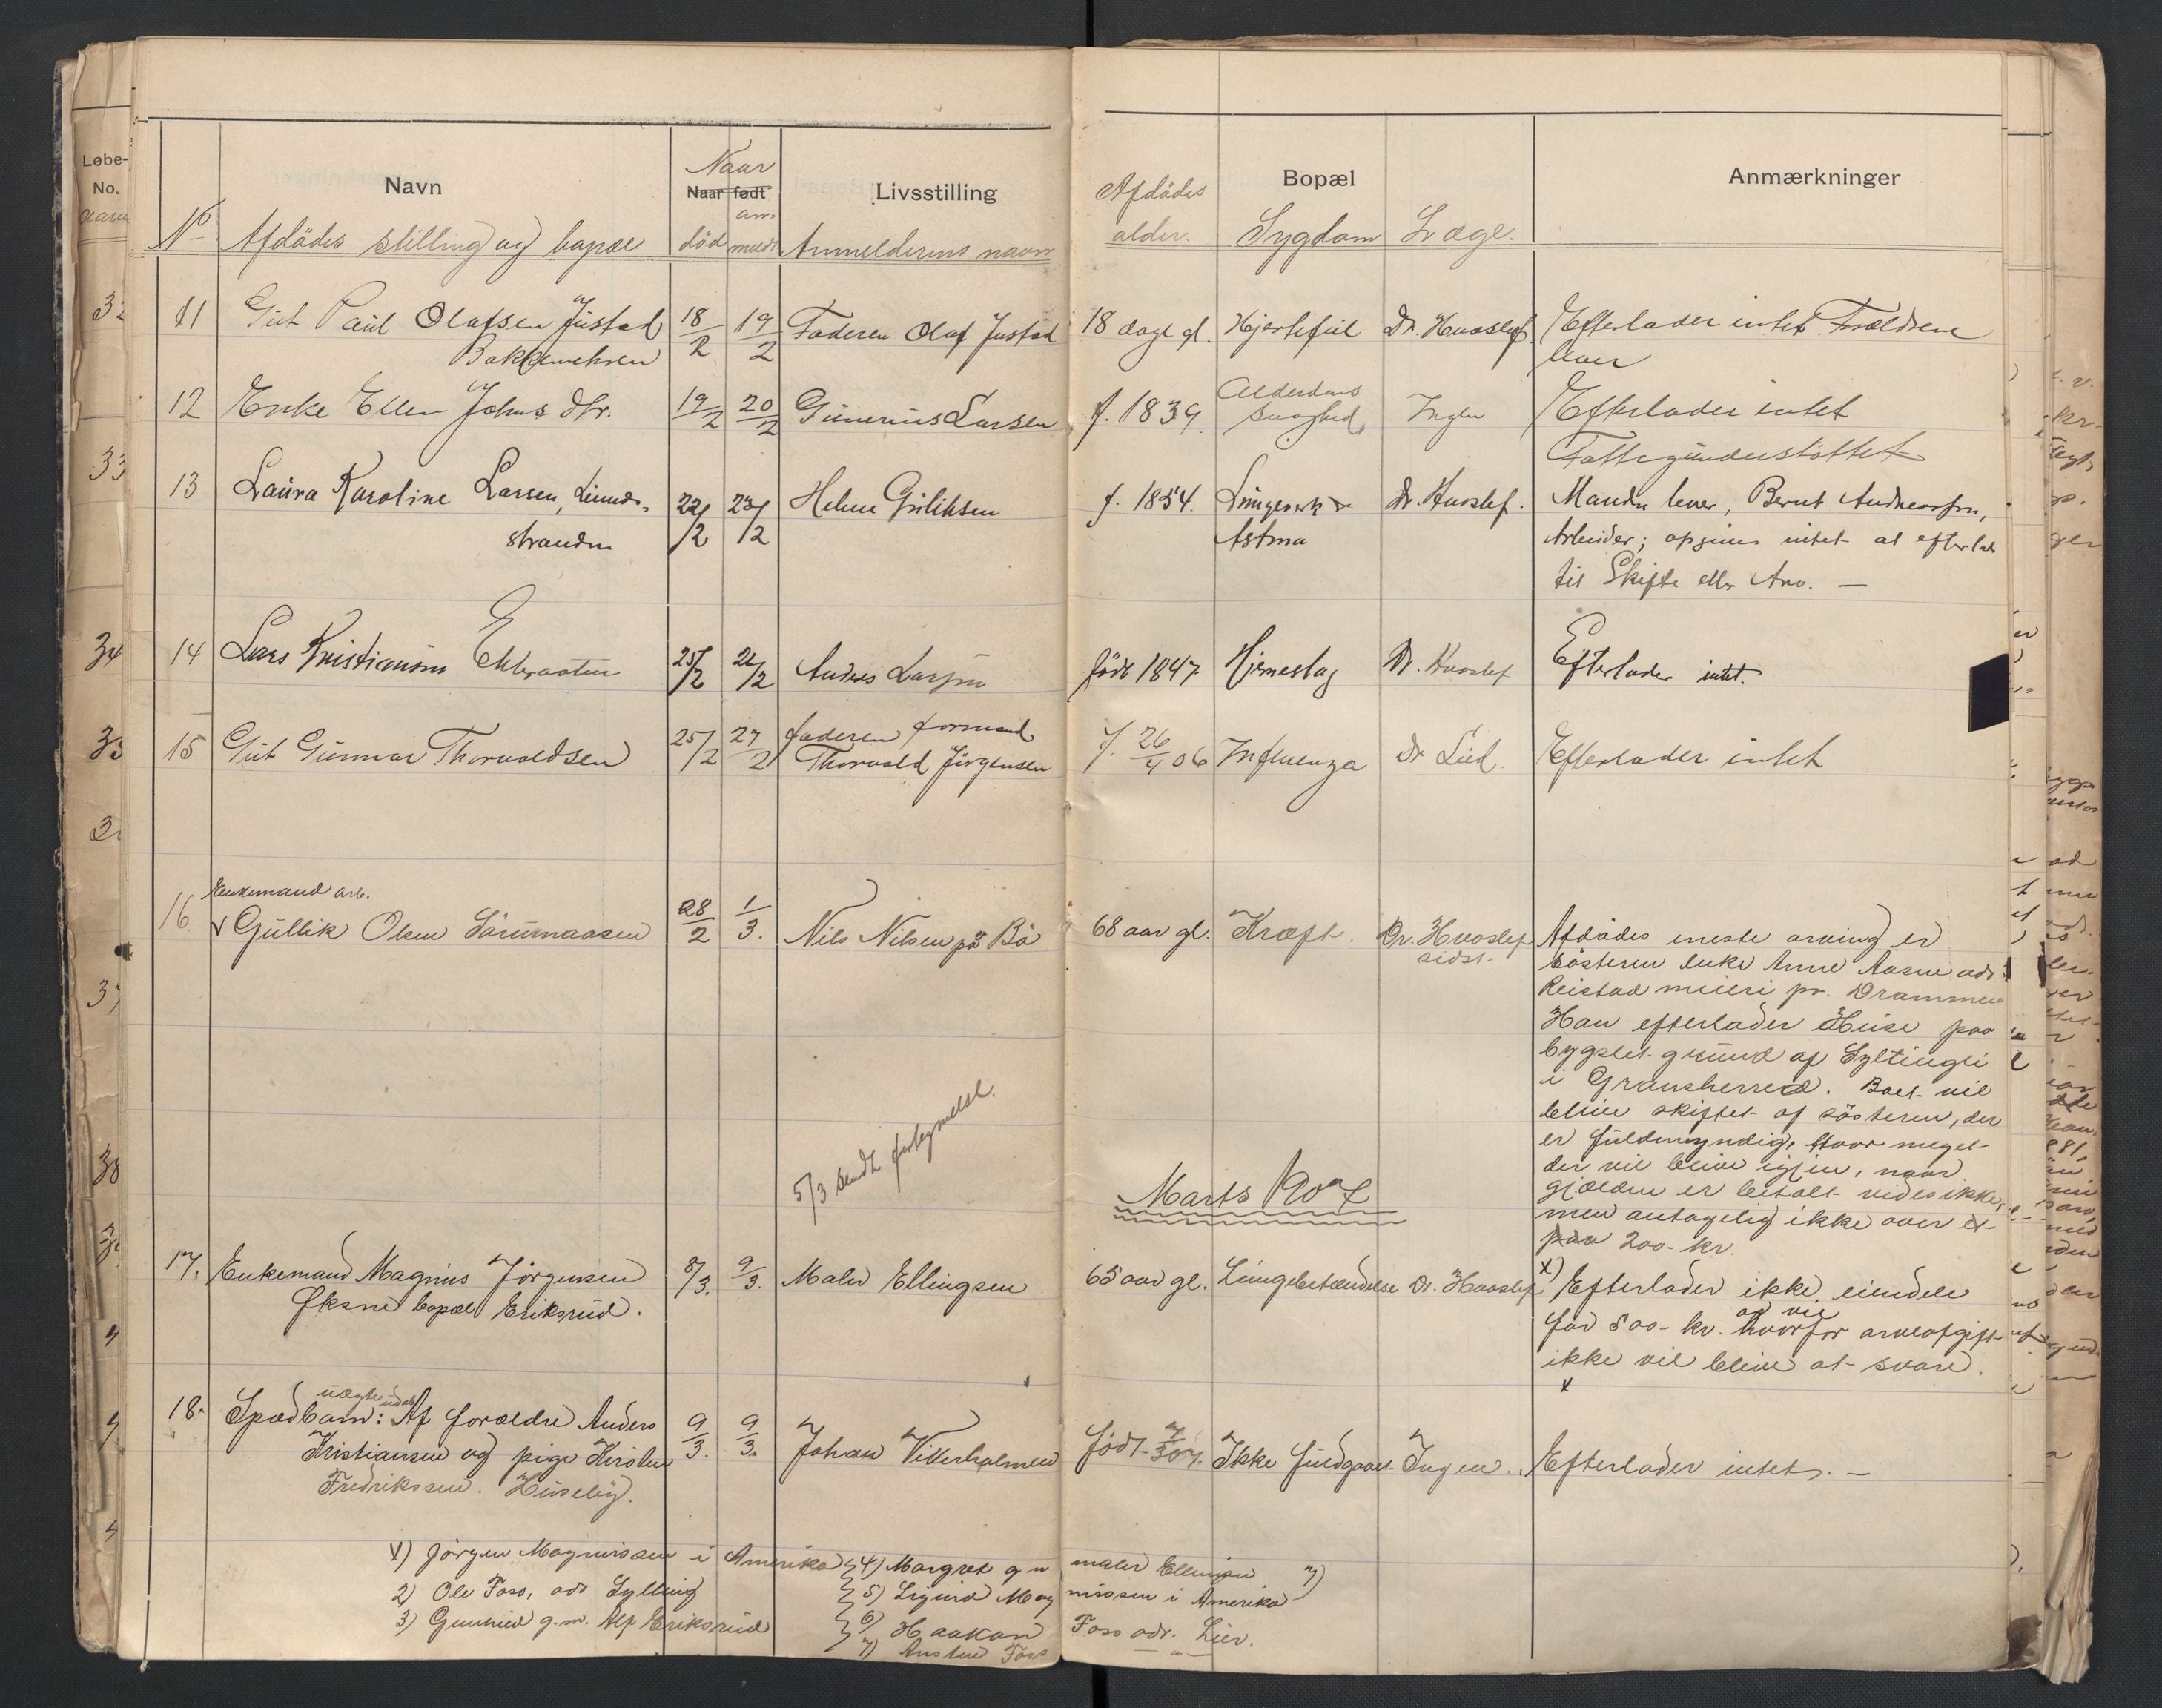 Løbe-
No.
Navn
Naar
Naar født
an-
Livsstilling
Afdødes
alder.
Bopæl
Anmærkninger
No
Afdødes stilling og bopæl
død
meldt
Anmelderens navn
Sygdom
Læge.
11 Gut Paul Olafsen Justad 18/2 19/2 Faderen Olaf Justad 18 dage gl. Hjertefeil Dr. Huoslef Efterlader intet. Forældrene
lever
12 Enke Ellen Johns dtr. 19/2 20/2 Gunerius Larsen f. 1839 Alderdoms
svaghed Ingen Efterlader intet
Fattigunderstøttet
13 Laura Karoline Larsen, Linnes-
stranden 22/2 23/2 Helene Guliksen f. 1854. Lungeverk
Astma Dr. Huoslef. Manden lever, Bernt Andreassen,
Arbeider; opgives intet at efterlade
til Skifte eller Arv. —
14 Lars Kristiansen Ekbraaten 25/2 26/2 Anders Larsen født 1847. Hjerneslag Dr. Huoslef Efterlader intet.
15 Gut Gunnar Thorvaldsen 25/2 27/2 faderen formand
Thorvald Jørgensen f. 26/4 06 Influenza Dr Lied. Efterlader intet
Enkemand arb.
16. Gullik Olsen 28/2 1/3. Nils Nilsen på Bö 68 aar gl. Kræft. Dr. Huoslef
sidst.
Afdødes eneste arving er
søsteren enke Anne Aasne adr
Reistad meieri pr. Drammen
Han efterlader Huse paa
bygslet grund af Syltingli
i Gransherred. Boet vil
blive skiftet af søsteren, der
er fuldmyndig, Hvor meget
der vil blive igjen, naar
gjælden er betalt vides ikke,
men antagelig ikke over et
par 200- kr.
5/3 sendt fortegnelse.
Marts 1907
17. Enkemand Magnus Jørgensen
Øksne bopæl Eriksrud. 8/3. 9/3. Maler Ellingsen 65 aar gl. Lungebetændelse Dr. Huoslef x) Efterlader ikke eiendele
for 800- kr. hvorfor arveafgift
og vil
ikke vil blive at svare.
x
18. Spædbarn: uægte Af forældre Anders
Kristiansen og pige Kirsten
Fredrikssen. Huseby. 9/3. 9/3. Johan Vitterholmen født 7/3 07. Ikke fuldgaaet. Ingen. Efterlader intet. —
1) Jørgen Magnussen i Amerika
2) Ole Foss, adr Sylling
3) Gunhild g.m. Alf Eriksrud
4) Margret g m maler Ellingsen
5) Sigurd Magnussen i Amerika
6) Haakon Foss adr. Lier.
7) Foss — " —